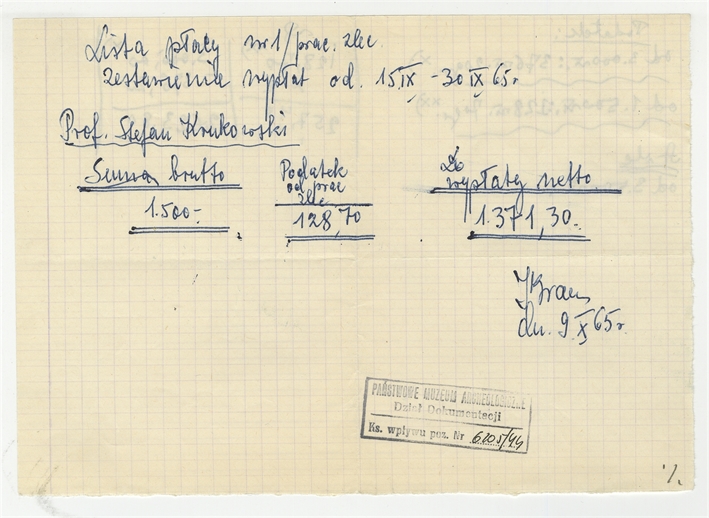 Lista płacy nr 1/prac. zlec.
zestawienie wypłat od. 15 IX - 30 IX 65 r.
Prof. Stefan Krukowski
Suma brutto
1.500-
Podatek
od prac
zlec
128,70
Do
wypłaty netto.
1.371,30-
dn. 9 X 65 r.
PAŃSTWOWE MUZEUM ARCHEOLOGICZNE
Dział Dokumentacji
Ks. wpływu poz. Nr